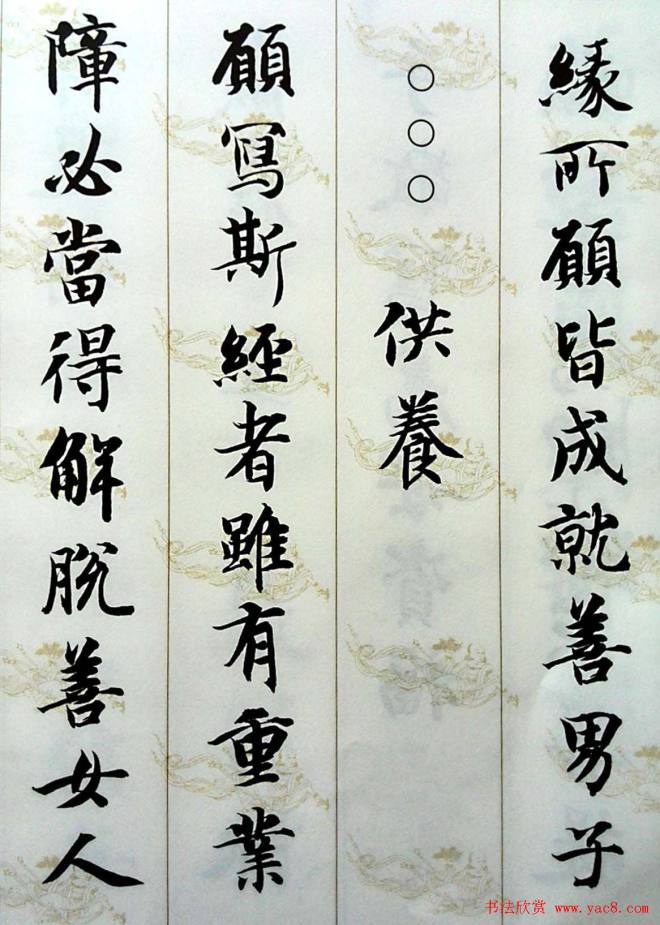 緣所願皆成就善男子
○○○供養
願寫斯經者雖有重業
障必當得解脫善女人
书法欣赏 www.yac8.com